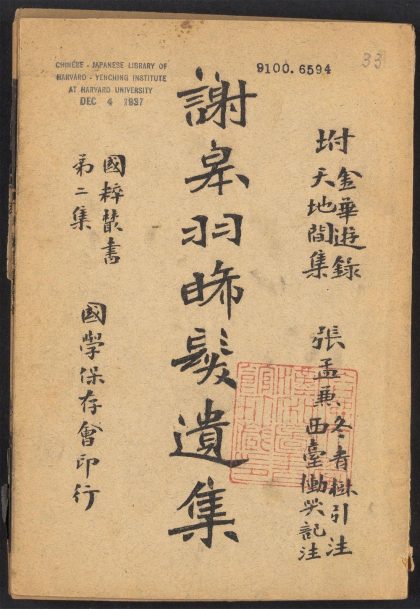 CHINESE - JAPANESE LIBRARY OF
HARVARD - YENCHING INSTITUTE
AT HARVARD UNIVERSITY
DEC 4 1937
9100.6594
33
坿
金華遊錄
天地間集
張孟兼
冬青樹引注
西臺慟哭記注
謝皋羽晞髮遺集
國粹叢書
第二集
國學保存會印行